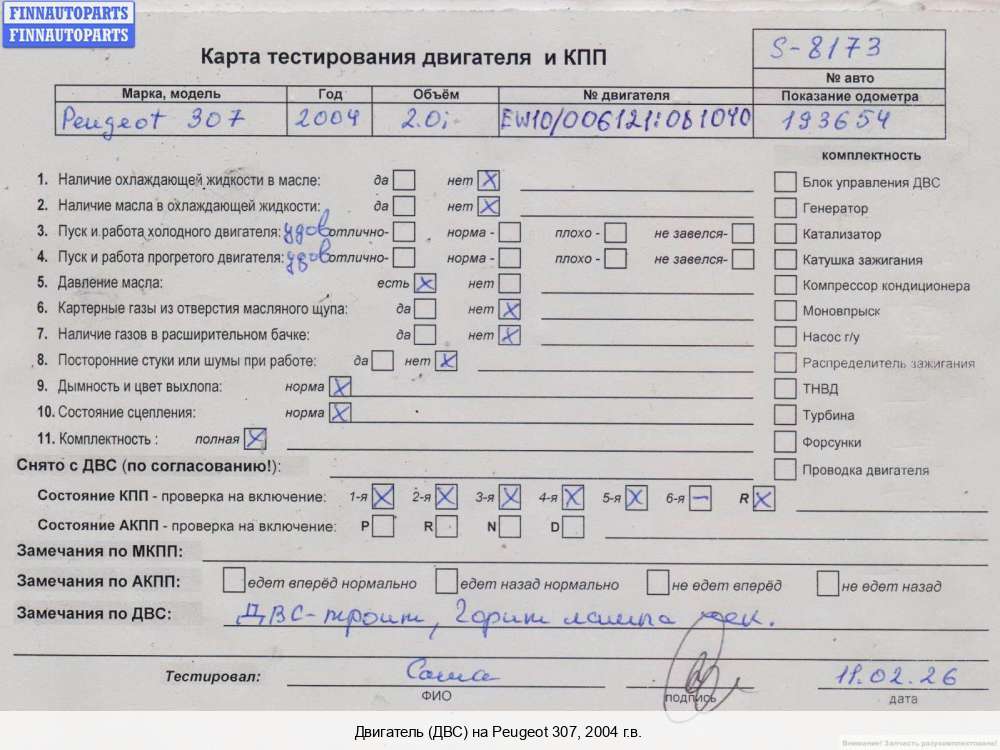 FINNAUTOPARTS
FINNAUTOPARTS
Карта тестирования двигателя и КПП
S-8173
№ авто
Марка, модель Год Объём № двигателя Показание одометра
Peugeot 307 2004 2.0i EW10/006121:081040 193654
комплектность
1. Наличие охлаждающей жидкости в масле: да нет X
Блок управления ДВС
2. Наличие масла в охлаждающей жидкости: да нет X
Генератор
3. Пуск и работа холодного двигателя: удов отлично- норма - плохо - не завелся-
Катализатор
4. Пуск и работа прогретого двигателя: удов отлично- норма - плохо - не завелся-
Катушка зажигания
5. Давление масла: есть X нет
Компрессор кондиционера
6. Картерные газы из отверстия масляного щупа: да нет X
Моновпрыск
7. Наличие газов в расширительном бачке: да нет X
Насос г/у
8. Посторонние стуки или шумы при работе: да нет X
Распределитель зажигания
9. Дымность и цвет выхлопа: норма X
ТНВД
10. Состояние сцепления: норма X
Турбина
11. Комплектность : полная X
Форсунки
Снято с ДВС (по согласованию!):
Проводка двигателя
Состояние КПП - проверка на включение: 1-я X 2-я X 3-я X 4-я X 5-я X 6-я — R X
Состояние АКПП - проверка на включение: P R N D
Замечания по МКПП:
Замечания по АКПП: едет вперёд нормально едет назад нормально не едет вперёд не едет назад
Замечания по ДВС: ДВС-троит, горит лампа чек.
Тестировал: Саша 11.02.26
ФИО подпись дата
Двигатель (ДВС) на Peugeot 307, 2004 г.в.
Внимание! Запчасть разукомплектована!